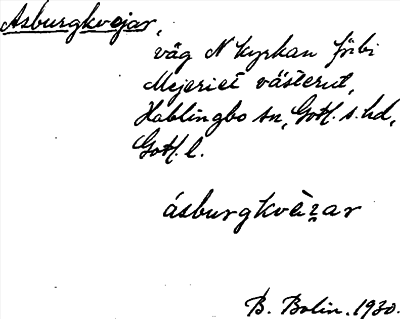 Asburgkvejar,
väg N kyrkan förbi
Mejeriet västerut,
Hablingbo sn, Gotl. s. hd,
Gotl. l.
ásburgkvèɪ̯ar
B. Bolin. 1930.